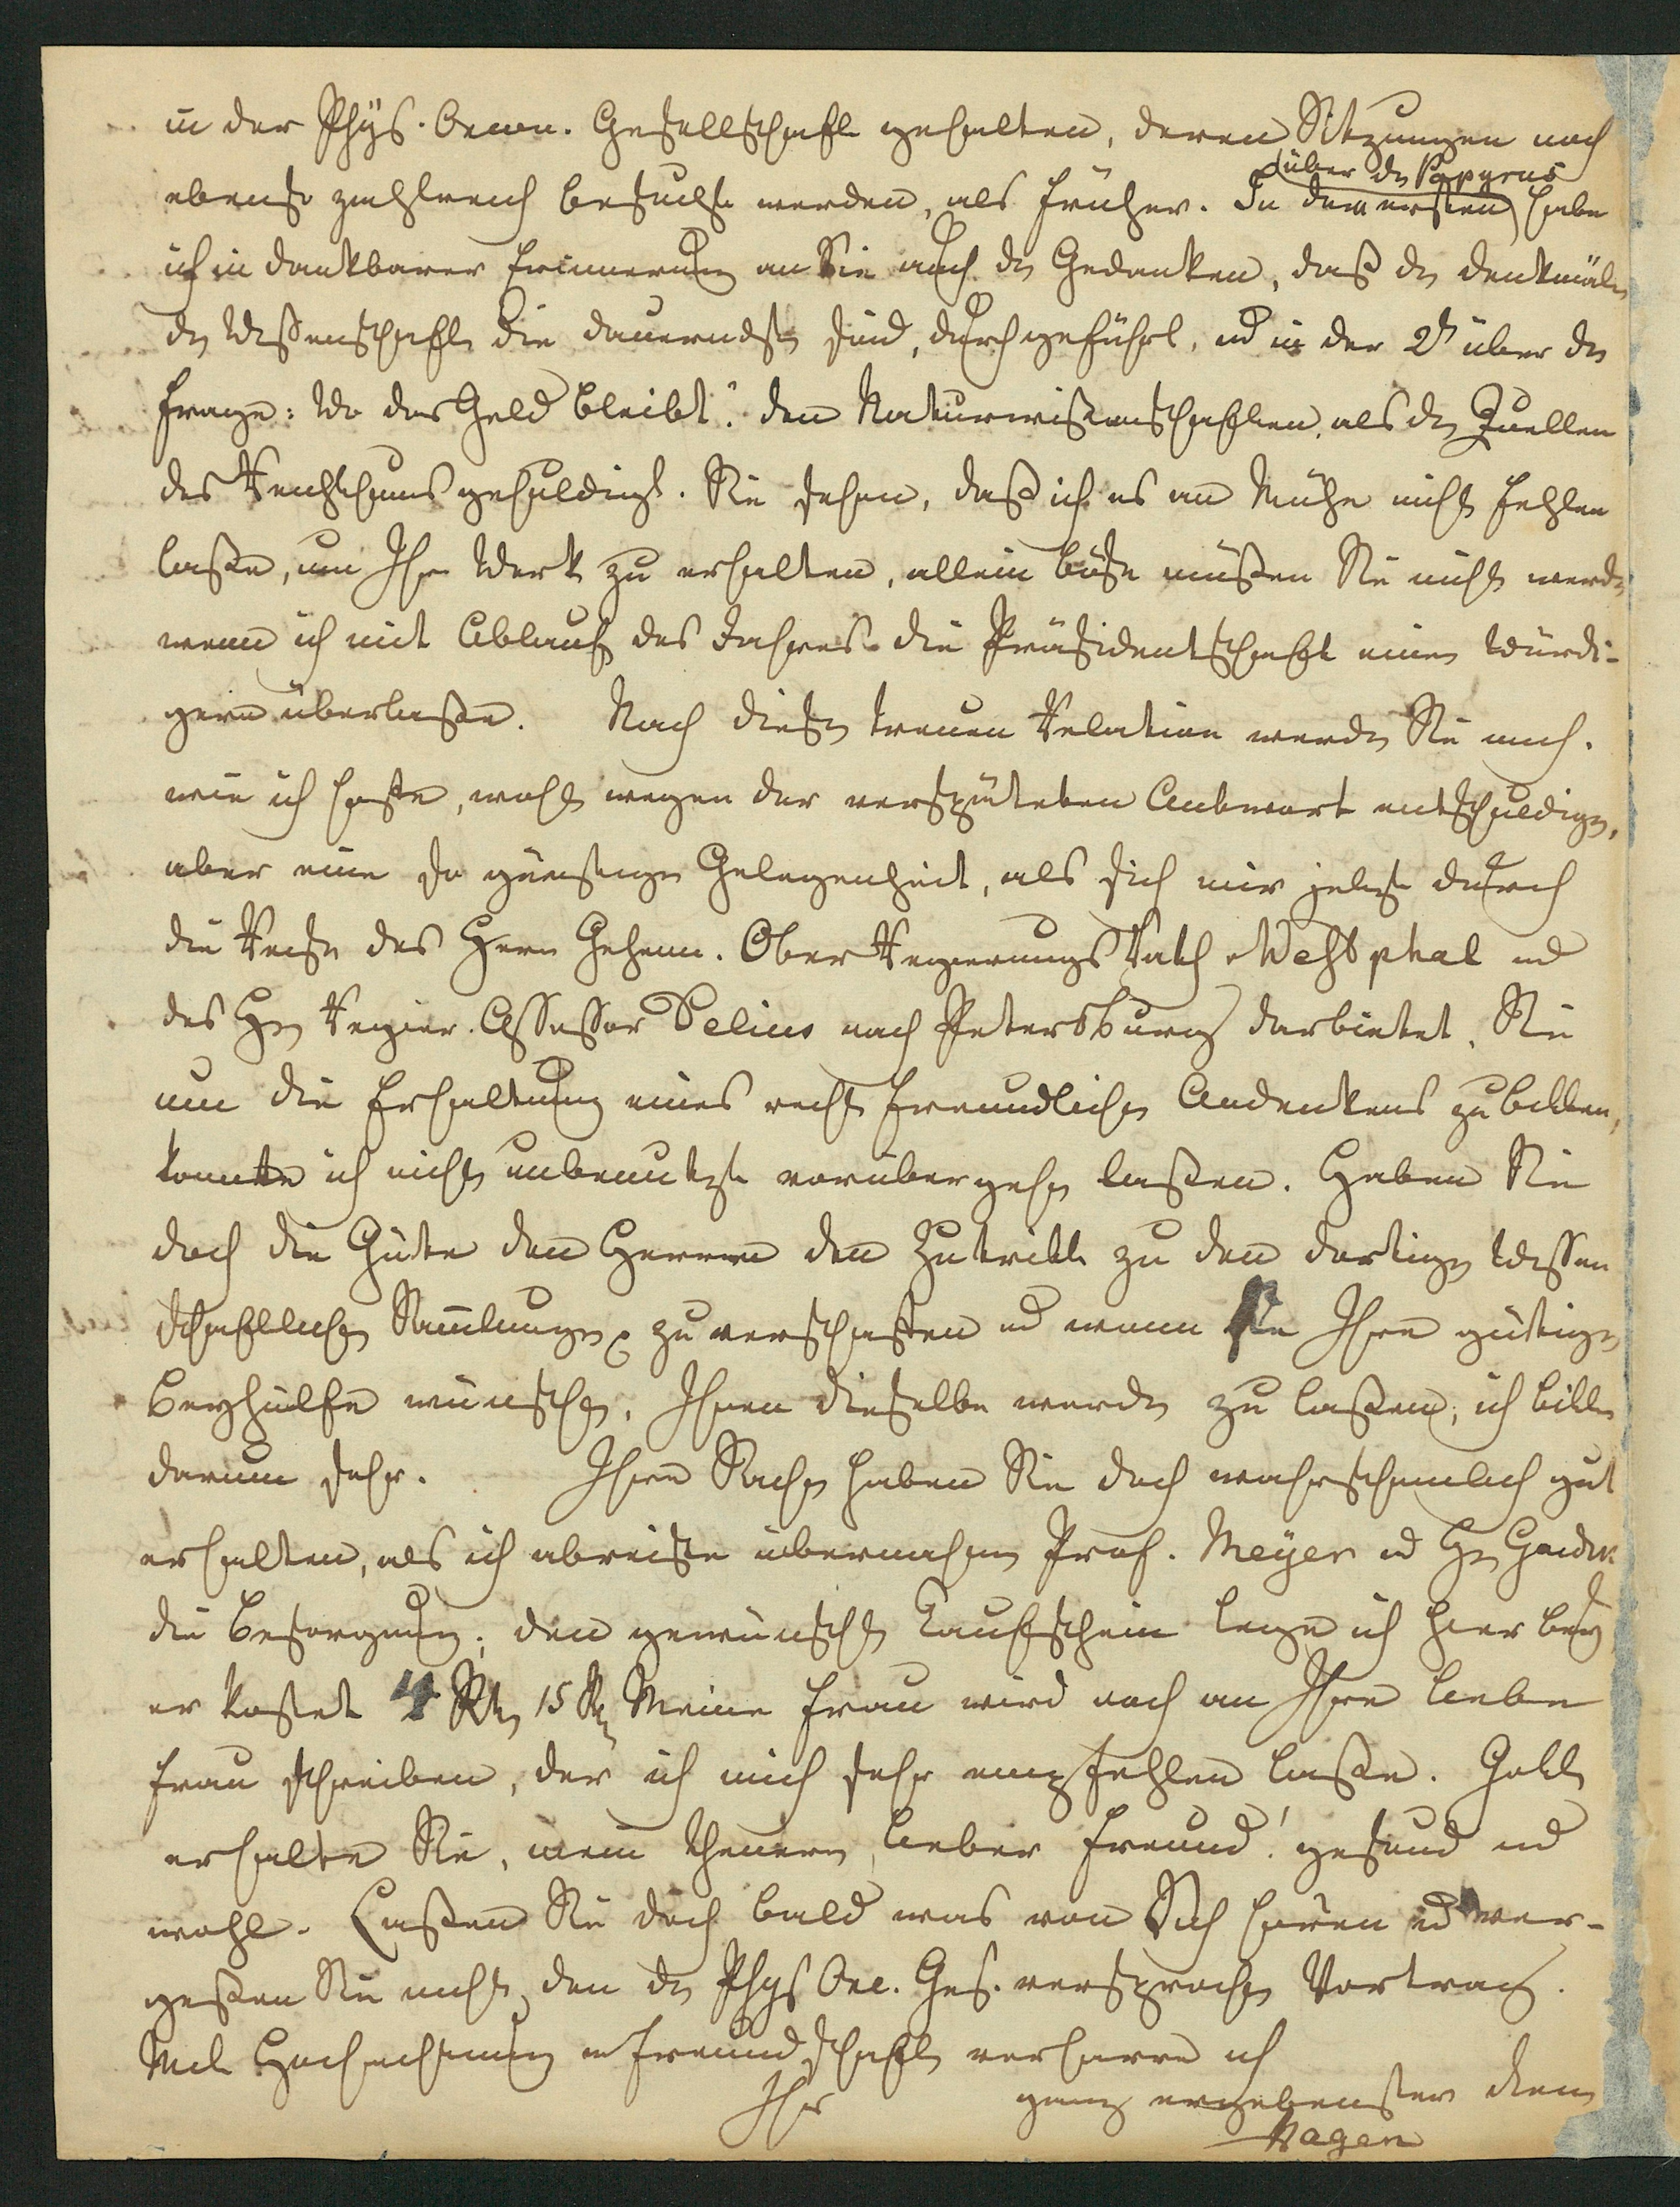 in der Phys. Oecon. Gesellschaft gehalten, deren Sitzungen noch
ebenso zahlreich besucht werden, als früher. In dem ersten über den Papyrus habe
ich in dankbarer Erinnerung an Sie auch den Gedanken, daß die Denkmäler
der Wissenschaften die dauerndsten sind, durchgeführt, und in der 2t über die
Frage: Wo das Geld bleibt? den Naturwissenschaften, als den Quellen
des Reichthums gehuldigt. Sie sehen, daß ich es an Mühe nicht fehlen
lasse, um Ihr Werk zu erhalten, allein böse müßen Sie nicht werden
wenn ich mit Ablauf des Jahres die Präsidentschaft einem Würdi-
gern überlasse. Nach dieser treuen Relation werden Sie mich,
wie ich hoffe, wohl wegen der verspäteten Antwort entschuldigen,
aber eine so günstige Gelegenheit, als sich mir jetzt durch
die Reise des Herrn Geheim. Ober Regierungs Rath Westphal und
des Hrn Regier. Assessor Delius nach Petersburg darbietet, Sie
um die Erhaltung eines recht freundlichen Andenkens zu bitten,
konnte ich nicht unbenutzt vorübergehen lassen. Haben Sie
doch die Güte den Herren den Zutritt zu den dortigen wissen
schaftlichen Sammlungen zu verschaffen und wenn sie Ihre gütige
Beyhülfe wünschen, Ihnen dieselbe werden zu lassen, ich bitte
darum sehr. Ihre Sachen haben Sie doch wahrscheinlich gut
erhalten, als ich abreiste übernahmen Prof. Meyer und Hr
die Besorgung; den gewünschten Taufschein lege ich hier bey
er kostet 4 Rth 15 Sg Meine Frau wird noch an Ihre liebe
Frau schreiben, der ich mich sehr empfehlen lasse. Gott
erhalte Sie, mein theurer, lieber Freund! gesund und
wohl. Lassen Sie doch bald was von Sich hören und ver-
gessen Sie nicht den der Phys Oec. Ges. versprochenen Vortrag.
Mit Hochachtung u Freundschaft verharre ich
Ihr ganz ergebenster Diener
Hagen